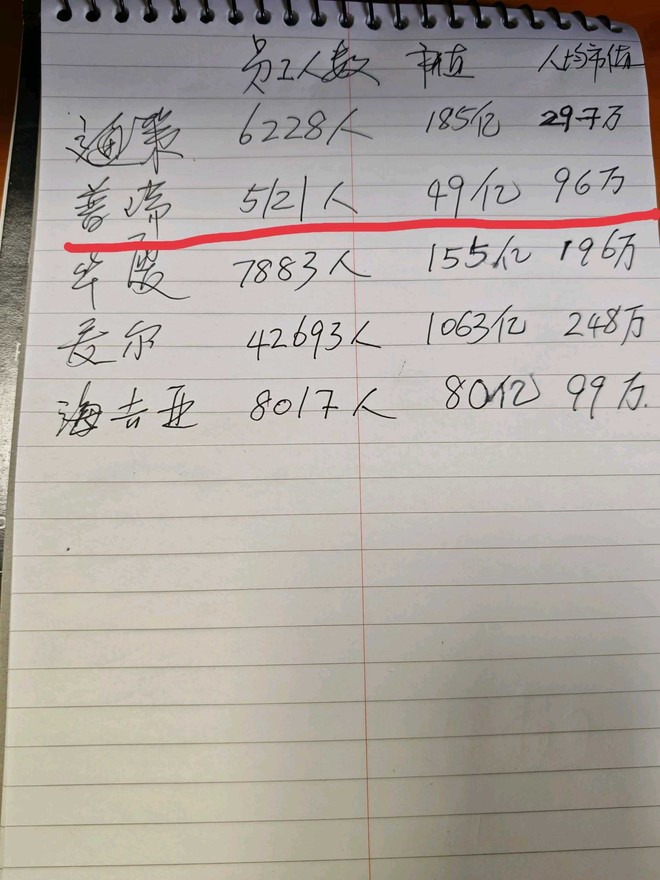 员工人数 市值 人均市值
通策 6228人 185亿 297万
普瑞 5121人 49亿 96万
华厦 7883人 155亿 196万
爱尔 42693人 1063亿 248万
海吉亚 8017人 80亿 99万